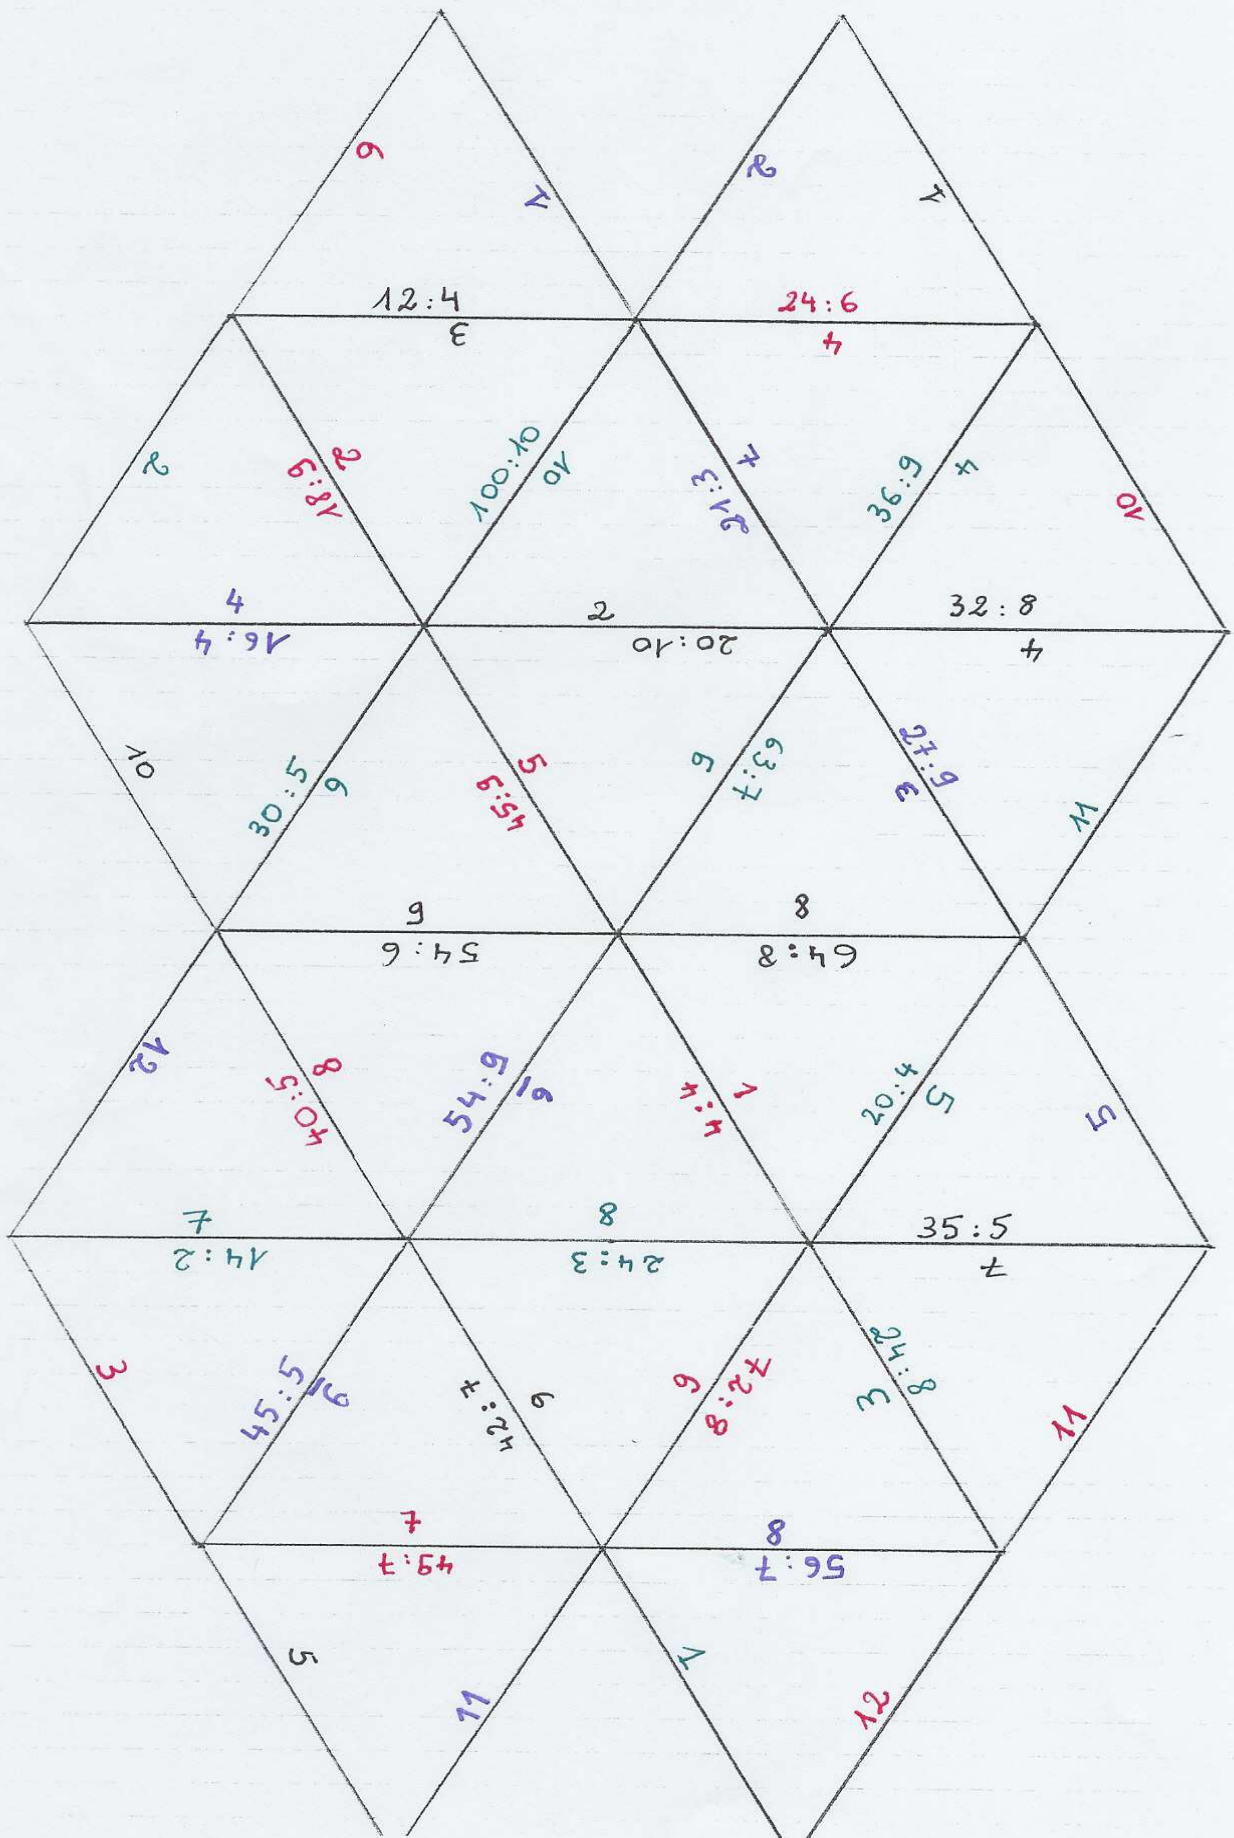 6
1
2
1
12:4
3
24:6
4
2
2
18:9
100:10
10
7
21:3
36:9
4
10
4
16:4
2
20:10
32:8
4
10
30:5
6
5
45:9
9
63:7
27:9
3
11
9
54:6
8
64:8
12
8
40:5
54:9
6
1
4:4
20:4
5
5
7
14:2
8
24:3
35:5
7
3
45:5
9
6
42:7
9
72:8
24:8
3
11
7
49:7
8
56:7
5
11
1
12